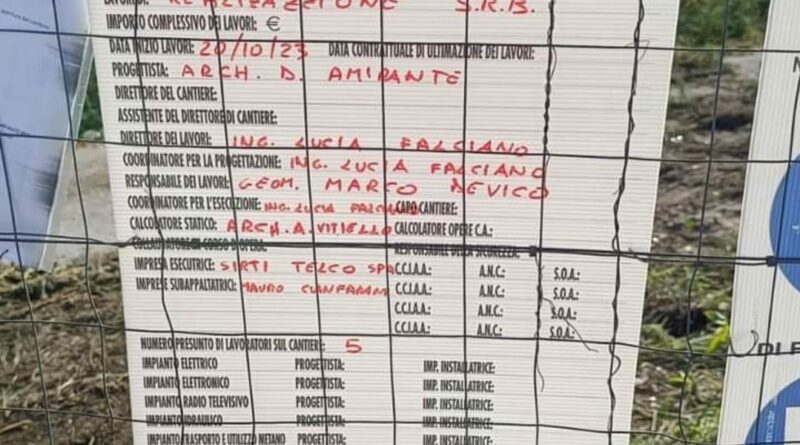 REALIZZAZIONE S.R.B.
IMPORTO COMPLESSIVO DEI LAVORI: €
DATA INIZIO LAVORI: 20/10/23 DATA CONTRATTUALE DI ULTIMAZIONE DEI LAVORI:
PROGETTISTA: ARCH. D. AMIRANTE
DIRETTORE DEL CANTIERE:
ASSISTENTE DEL DIRETTORE DI CANTIERE:
DIRETTORE DEI LAVORI: ING. LUCIA FALCIANO
COORDINATORE PER LA PROGETTAZIONE: ING. LUCIA FALCIANO
RESPONSABILE DEI LAVORI: GEOM. MARCO DEVICO
COORDINATORE PER L'ESECUZIONE: ING. LUCIA FALCIANO CAPO CANTIERE:
CALCOLATORE STATICO: ARCH. A. VITIELLO CALCOLATORE OPERE C.A.:
COLLAUDATORE IN CORSO D'OPERA: RESPONSABILE DELLA SICUREZZA:
IMPRESA ESECUTRICE: SIRTI TELCO SPA C.C.I.A.A.: A.N.C.: S.O.A.:
IMPRESE SUBAPPALTATRICI: MAURO C.C.I.A.A.: A.N.C.: S.O.A.:
C.C.I.A.A.: A.N.C.: S.O.A.:
C.C.I.A.A.: A.N.C.: S.O.A.:
NUMERO PRESUNTO DI LAVORATORI SUL CANTIERE: 5
IMPIANTO ELETTRICO PROGETTISTA: IMP. INSTALLATRICE:
IMPIANTO ELETTRONICO PROGETTISTA: IMP. INSTALLATRICE:
IMPIANTO RADIO TELEVISIVO PROGETTISTA: IMP. INSTALLATRICE:
IMPIANTO IDRAULICO PROGETTISTA: IMP. INSTALLATRICE:
IMPIANTO TRASPORTO E UTILIZZO METANO PROGETTISTA: IMP. INSTALLATRICE: